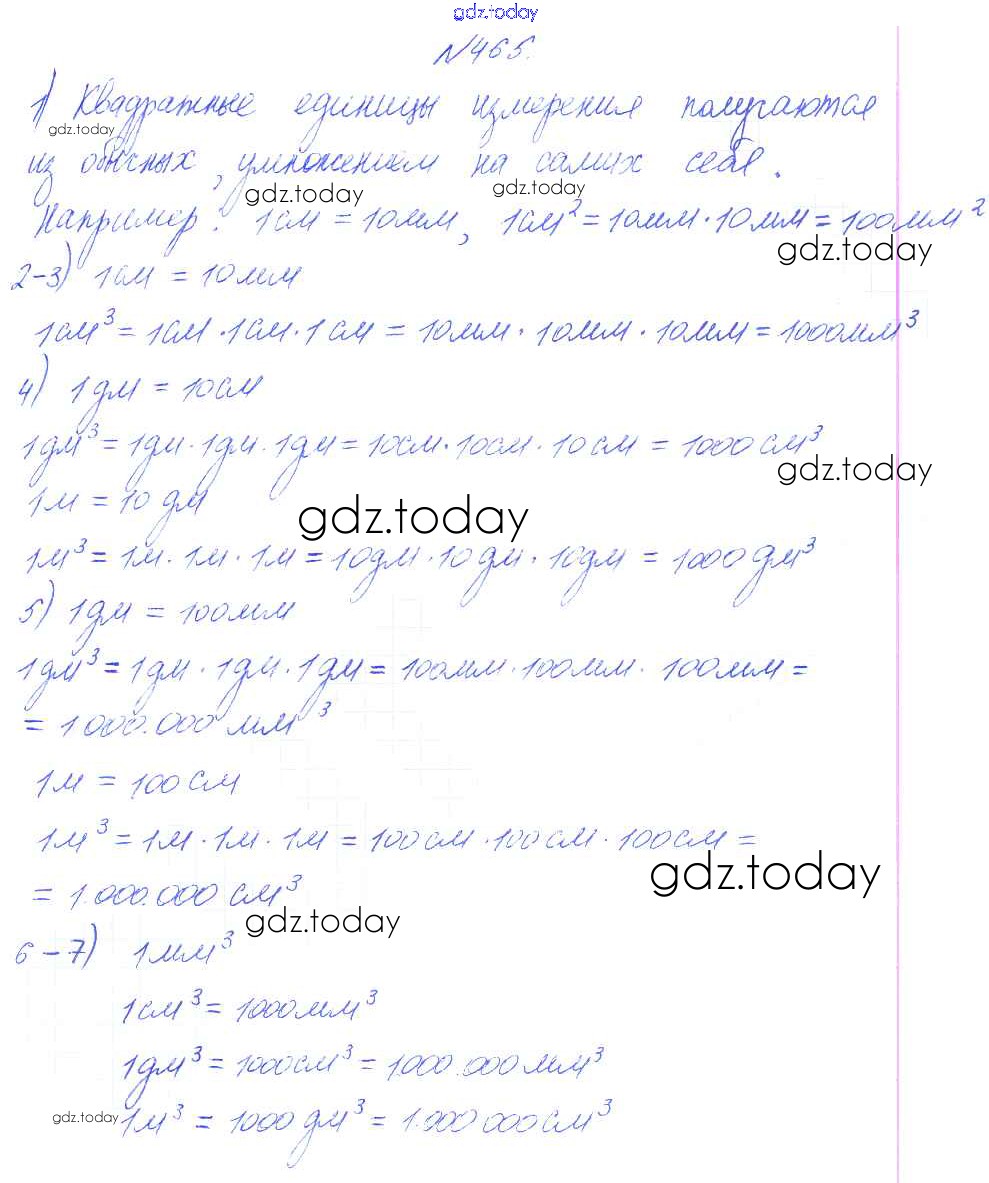 gdz.today
№465.
1) Квадратные единицы измерения получаются
gdz.today
из обычных, умножением на самих себя.
gdz.today gdz.today
Например: 1см = 10мм, 1см² = 10мм · 10мм = 100мм²
gdz.today
2-3) 1см = 10мм
1см³ = 1см · 1см · 1см = 10мм · 10мм · 10мм = 1000мм³
4) 1дм = 10см
1дм³ = 1дм · 1дм · 1дм = 10см · 10см · 10см = 1000см³
gdz.today
1м = 10дм
gdz.today
1м³ = 1м · 1м · 1м = 10дм · 10дм · 10дм = 1000дм³
5) 1дм = 100мм
1дм³ = 1дм · 1дм · 1дм = 100мм · 100мм · 100мм =
= 1000.000мм³
1м = 100см
1м³ = 1м · 1м · 1м = 100см · 100см · 100см =
gdz.today
= 1.000.000см³
gdz.today
6-7) 1мм³
1см³ = 1000мм³
1дм³ = 1000см³ = 1000.000мм³
gdz.today
1м³ = 1000дм³ = 1.000000см³